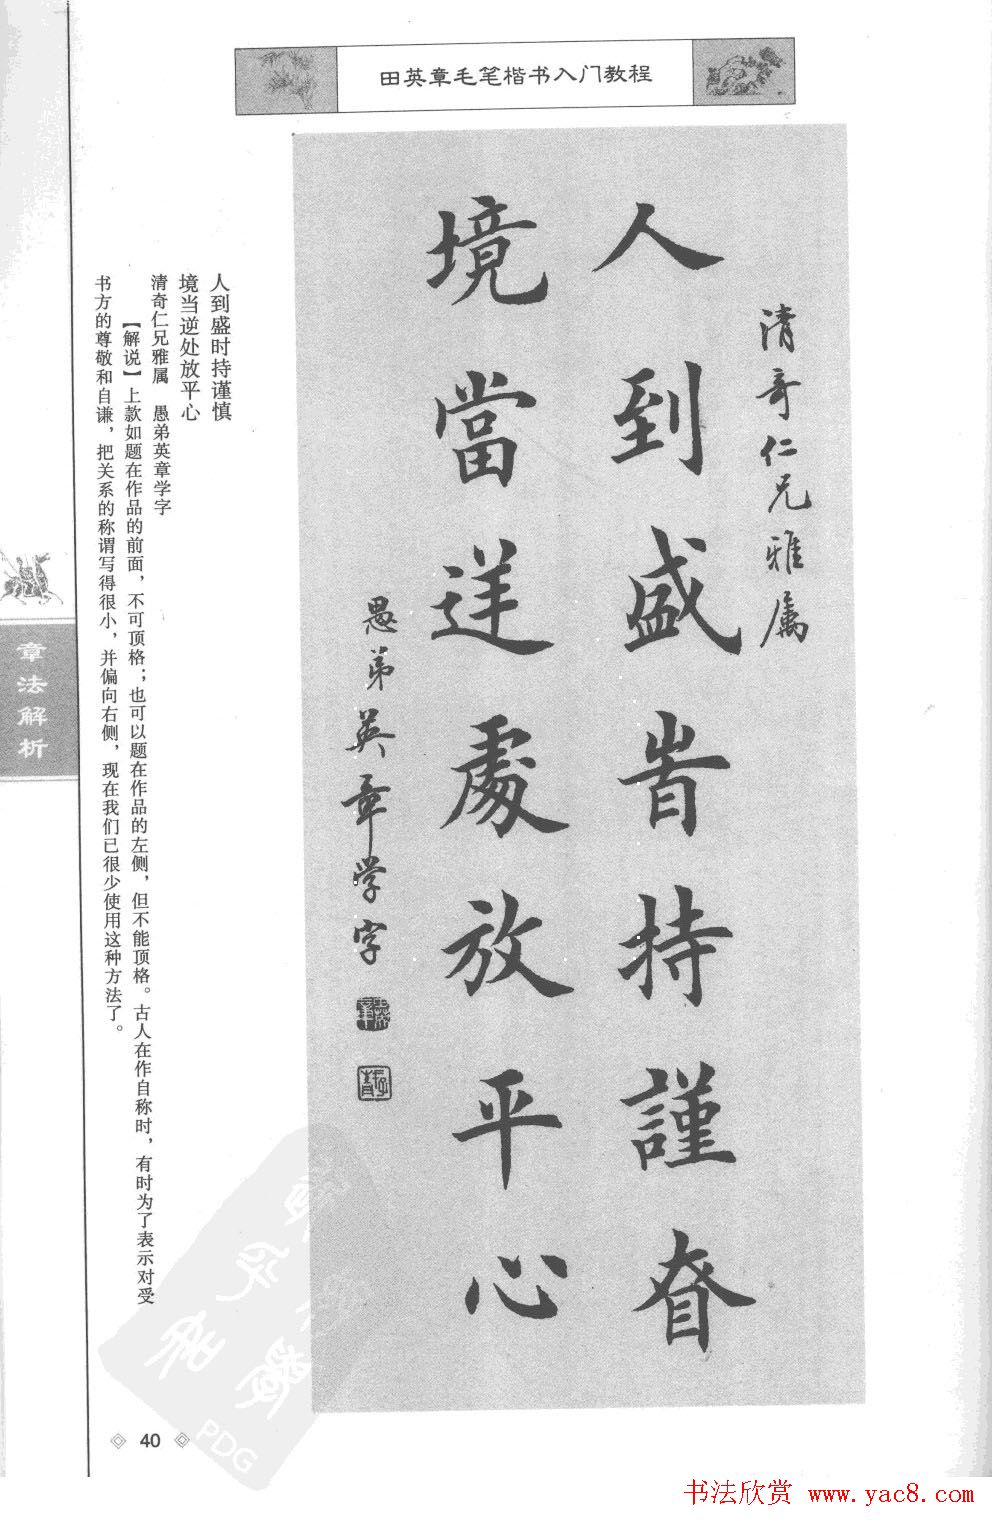 田英章毛笔楷书入门教程
清奇仁兄雅属
人到盛旹持謹昚
境當逆處放平心
愚弟英章学字
人到盛时持谨慎
境当逆处放平心
清奇仁兄雅属 愚弟英章学字
【解说】上款如题在作品的前面，不可顶格；也可以题在作品的左侧，但不能顶格。古人在作自称时，有时为了表示对受
书方的尊敬和自谦，把关系的称谓写得很小，并偏向右侧，现在我们已很少使用这种方法了。
章法解析
40
PDG
书法欣赏 www.yac8.com